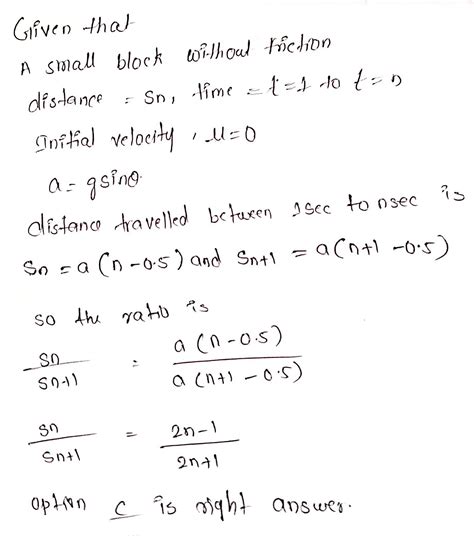 Given that
A small block without friction
distance = Sn, time = t=1 to t=n
Initial velocity, u=0
a = gsinθ
distance travelled between 1sec to nsec is
Sn = a(n-0.5) and Sn+1 = a(n+1-0.5)
so the ratio is
Sn/Sn+1 = a(n-0.5)/a(n+1-0.5)
Sn/Sn+1 = 2n-1/2n+1
option c is right answer.